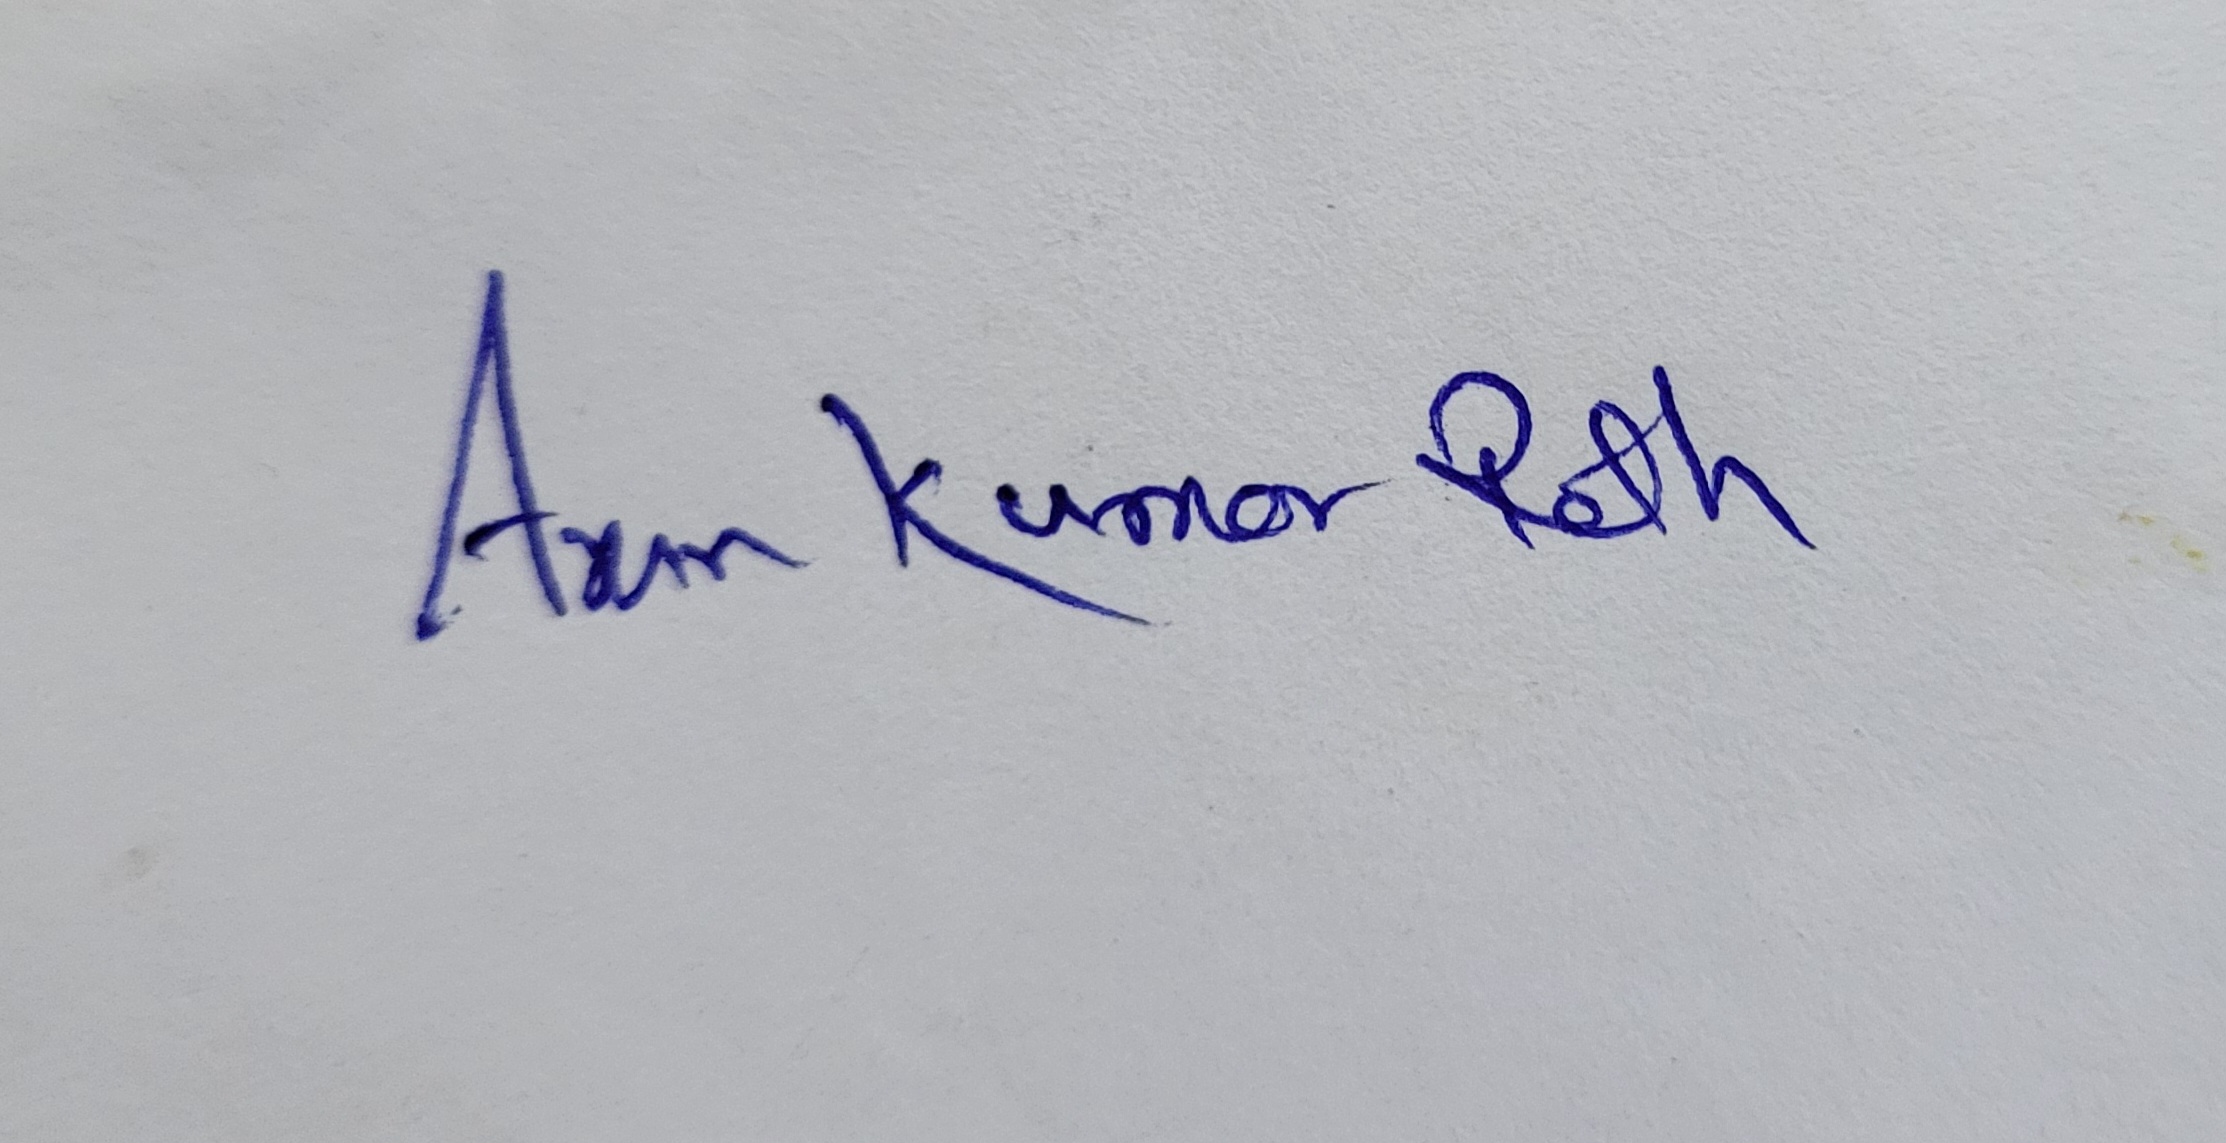 Arun Kumar Rath